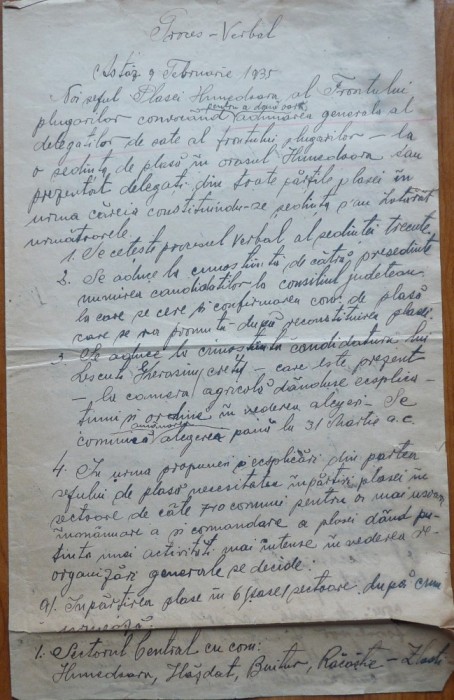 Proces-Verbal
Astăz 9 Februarie 1935
Noi șeful Plasei Hunedoara al Frontului
pentru a doua oară
plugarilor convocând adunarea generală al
delegaților de sate al frontului plugarilor – la
o ședință de plasă în orasul Hunedoara sau
prezentat delegați din toate părțile plasei în
urma căreia constituindu-ze ședința s'au hotărât
următoarele.
1. Se cetește procesul verbal al ședinței trecute
2. Se aduce la cunoștiință de către președinte
numirea candidaților la consiliul județean
la care se cere și confirmarea com. de plasă
care se va promulta după reconstituirea plasei
3. Se aduce la cunostiința candidatura lui
Gherasim – care este prezent
– la camera agricolă dânduse ecsplica-
țiuni și ordine în vederea alegeri. Se
comunică alegerea până la 31 Martie a.c.
4. In urma propuneri și ecsplicări din partea
sefului de plasă necesitatea înpărțiri plasei în
sectoare de câte 7-10 comuni pentru o mai ușoară
înmânuare a și comandare a plasei dând pu-
tința unei activități mai intense în vederea re-
organizări generale se decide:
a). Inpărțirea plase în 6 (șase) sectoare după cum
urmează:
1. Sectorul Central cu com:
Hunedoara, Hășdat, Buituri, Răcăștie – Zlasti